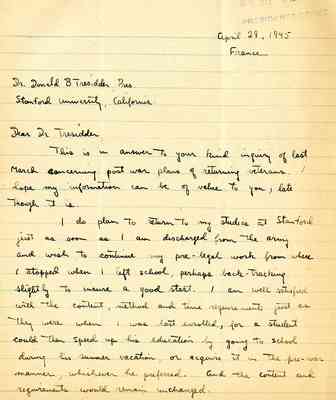 PRESIDENT'S OFFICE
April 28, 1945
France
Dr. Donald B Tresidder, Pres.
Stanford University, California
Dear Dr. Tresidder,
This is in answer to your kind inquiry of last
March concerning post war plans of returning veterans. I
hope my information can be of value to you, late
though it is.
I do plan to return to my studies at Stanford
just as soon as I am discharged from the army
and wish to continue my pre-legal work from where
I stopped when I left school, perhaps back-tracking
slightly to insure a good start. I am well satisfied
with the content, method and time requirements just as
they were when I was last enrolled, for a student
could then speed up his education by going to school
during his summer vacation, or acquire it in the pre-war
manner, whichever he preferred. And the content and
requirements would remain unchanged.